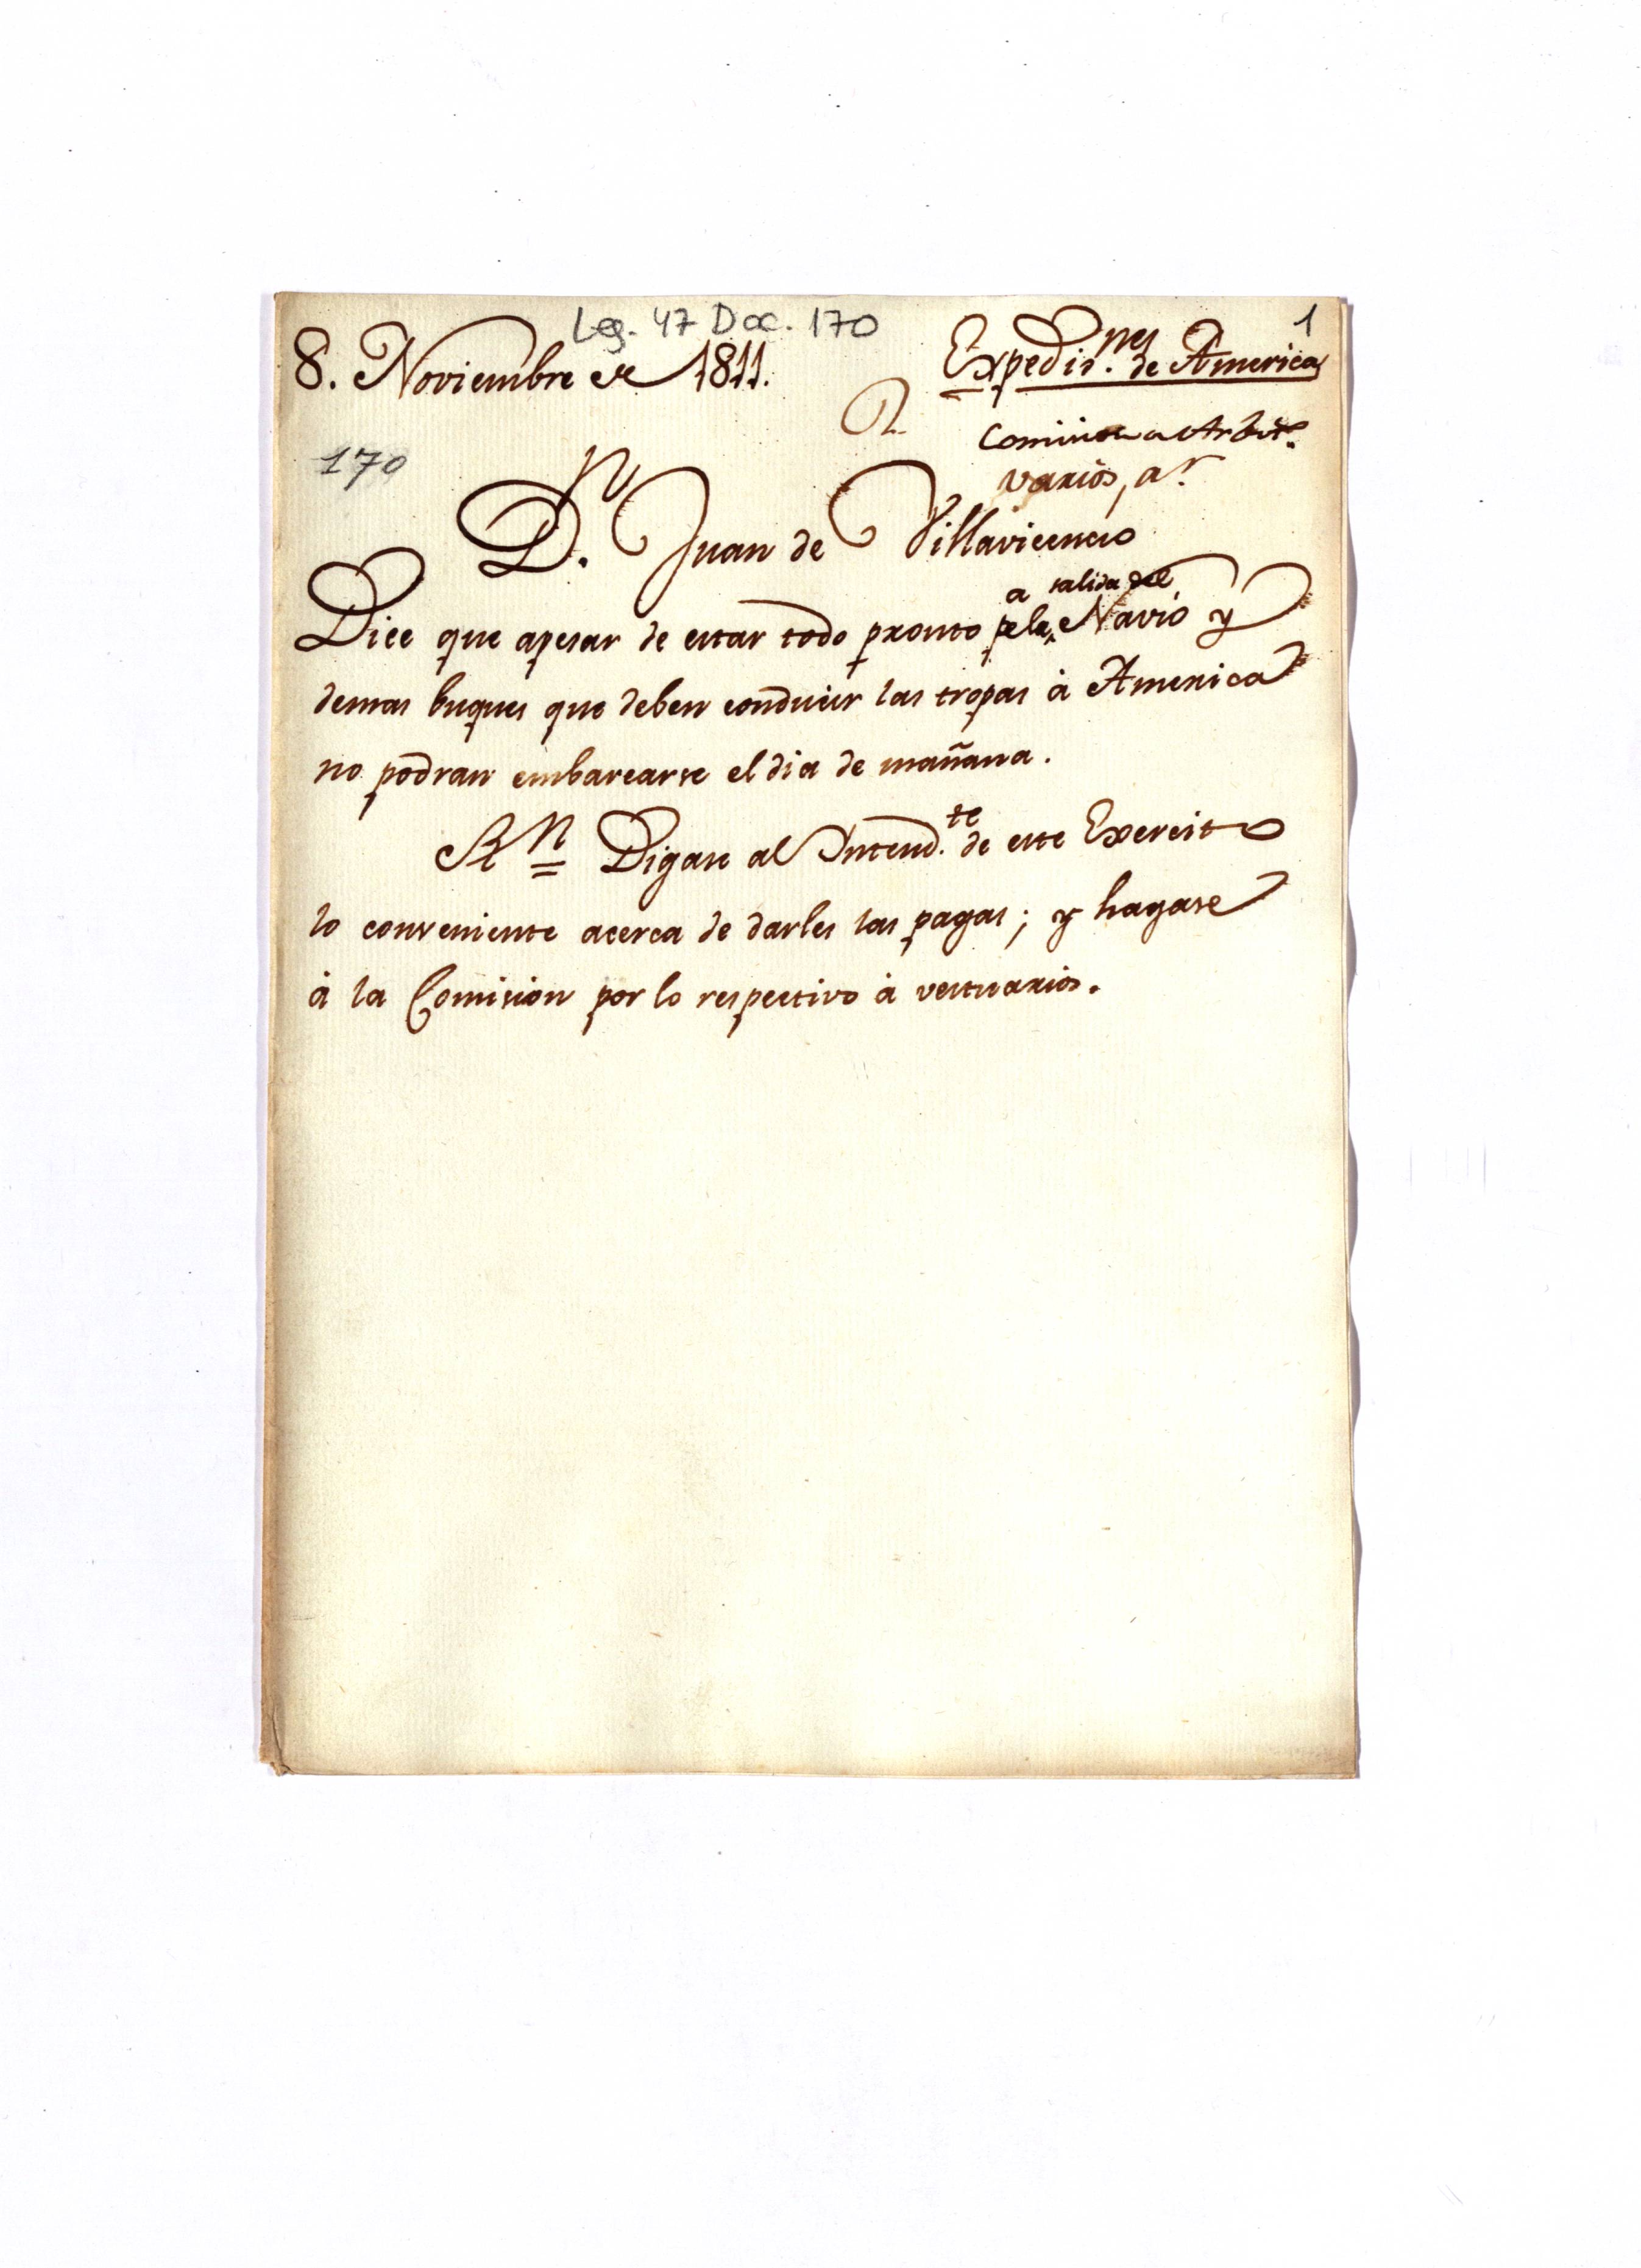 Leg. 47 Doc. 170
1
8. Noviembre de 1811.
Expedic.nes de America
Comision de Arbit.s
varios, a.r
170
D.n Juan de Villavicencio
a salida del
Dice que apesar de estar todo pronto p.a la Navio y
demas buques que deben conducir las tropas à America
no podran embarcarse el dia de mañana.
R.n = Digase al Intend.te de este Exercito
lo conveniente acerca de darles las pagas; y hagase
à la Comision por lo respectivo à vestuarios.